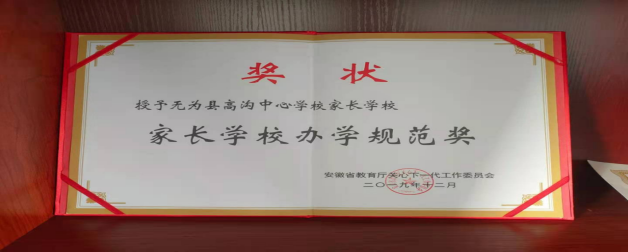 奖 状
授予无为县高沟中心学校家长学校
家长学校办学规范奖
安徽省教育厅关心下一代工作委员会
二〇一九年十二月